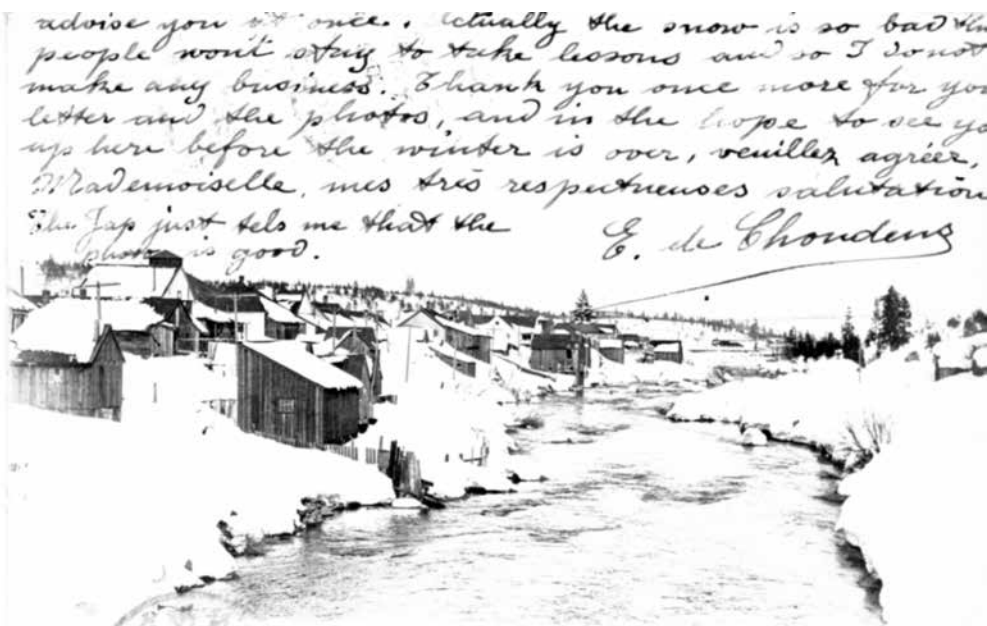 advise you at once. Actually the snow is so bad
people wont stay to take lessons and so I do not
make any business. Thank you once more for
letter and the photos, and in the hope to see
up here before the winter is over, veuillez agréer,
Mademoiselle, mes très respectueuses salutation
The Jap just tels me that the
photo is good.
E. de Choudens